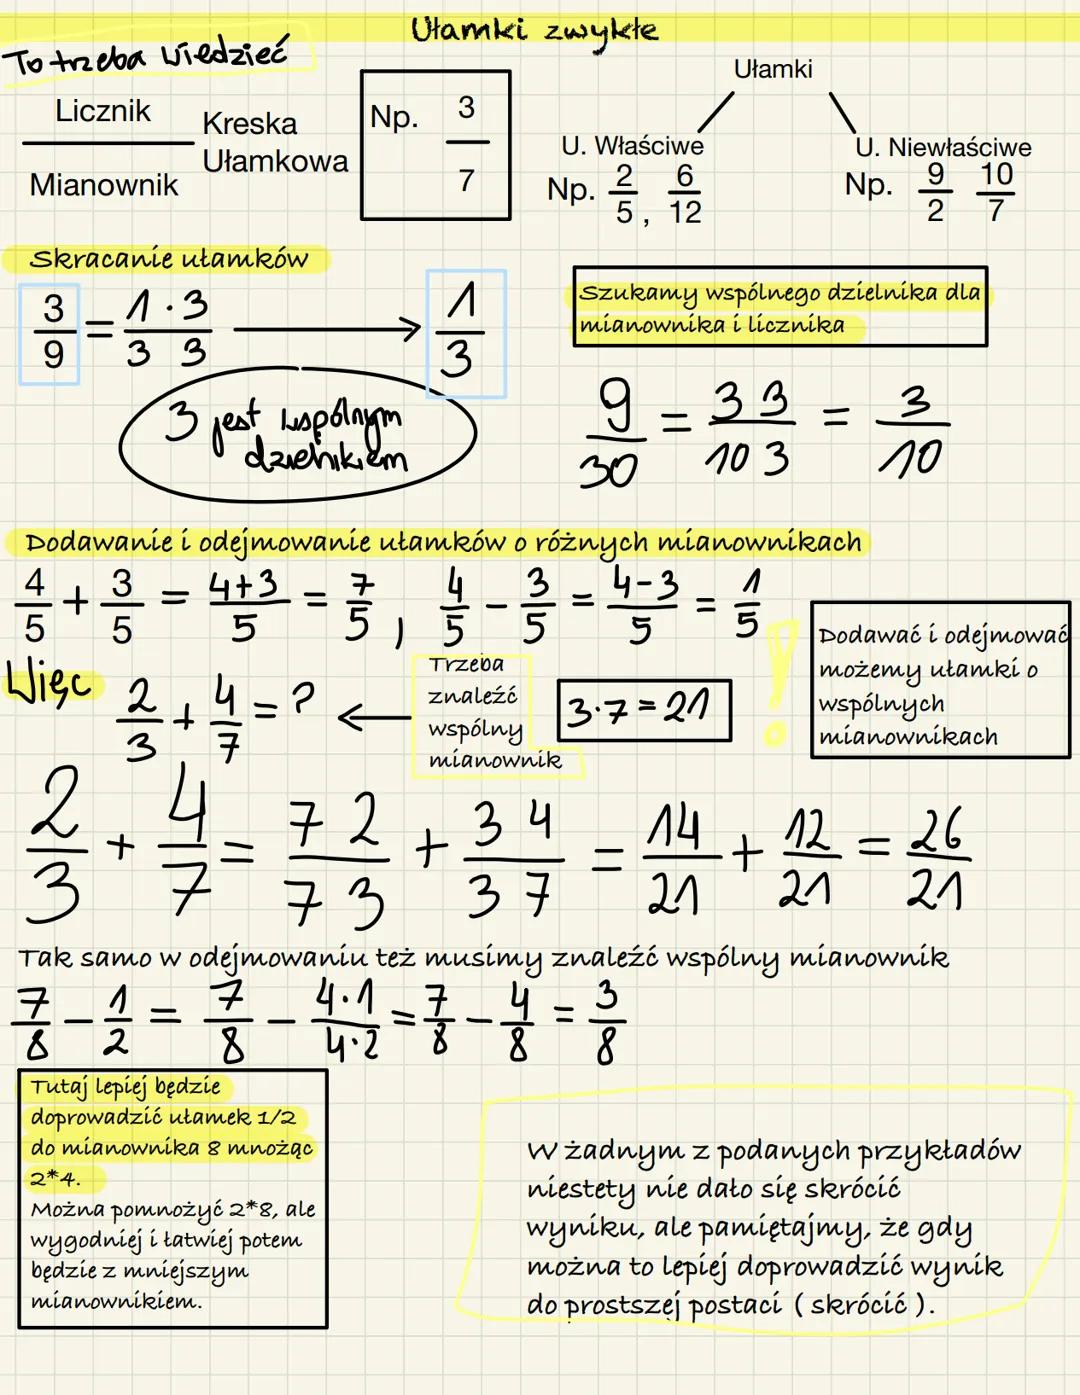 Ułamki zwykłe
To trzeba wiedzieć
Licznik
Mianownik
Kreska
Ułamkowa
Np. 3/7
Ułamki
U. Właściwe
Np. 2/5, 6/12
U. Niewłaściwe
Np. 9/2 10/7
Skracanie ułamków
3/9 = 1·3/3 3 → 1/3
3 jest wspólnym
dzielnikiem
Szukamy wspólnego dzielnika dla
mianownika i licznika
9/30 = 3 3/10 3 = 3/10
Dodawanie i odejmowanie ułamków o różnych mianownikach
4/5 + 3/5 = 4+3/5 = 7/5, 4/5 - 3/5 = 4-3/5 = 1/5
Dodawać i odejmować
możemy ułamki o
wspólnych
mianownikach
!
Więc
2/3 + 4/7 = ? ←
Trzeba
znaleźć
wspólny
mianownik
3·7=21
2/3 + 4/7 = 7 2/7 3 + 3 4/3 7 = 14/21 + 12/21 = 26/21
Tak samo w odejmowaniu też musimy znaleźć wspólny mianownik
7/8 - 1/2 = 7/8 - 4·1/4·2 = 7/8 - 4/8 = 3/8
Tutaj lepiej będzie
doprowadzić ułamek 1/2
do mianownika 8 mnożąc
2*4.
Można pomnożyć 2*8, ale
wygodniej i łatwiej potem
będzie z mniejszym
mianownikiem.
W żadnym z podanych przykładów
niestety nie dało się skrócić
wyniku, ale pamiętajmy, że gdy
można to lepiej doprowadzić wynik
do prostszej postaci ( skrócić ).